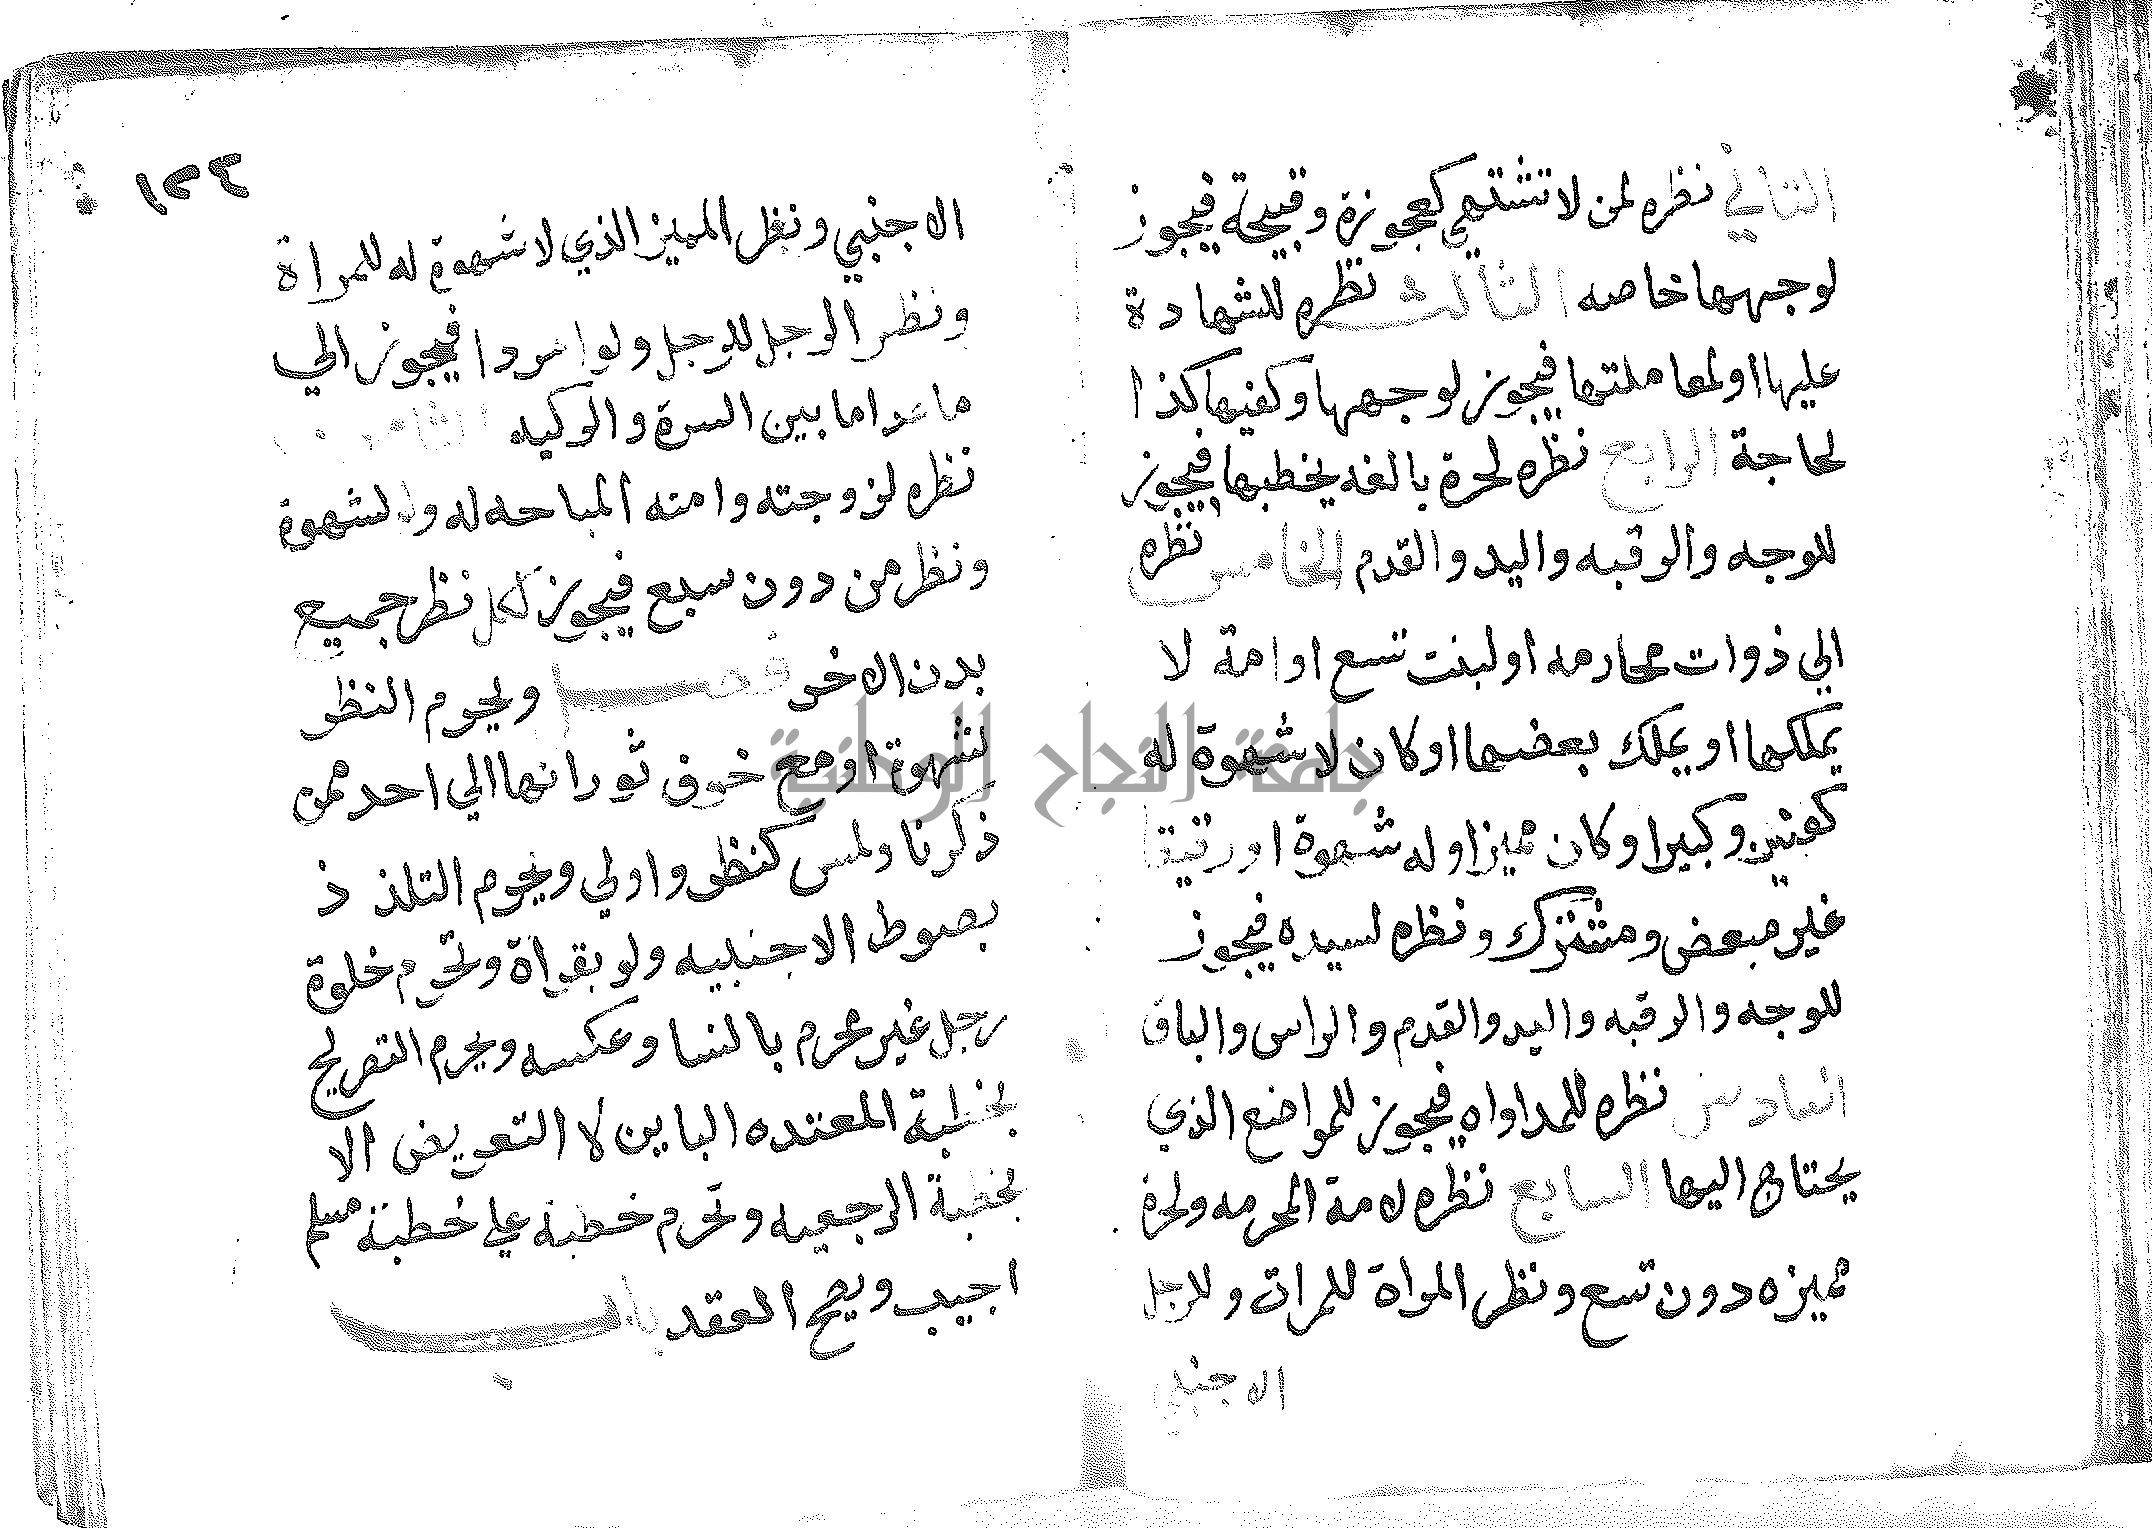 الثاني نظره لمن لا تشتهي كعجوزة وقبيحة فيجوز
لوجهها خاصه الثالث نظره للشهادة
عليها او لمعاملتها فيجوز لوجهها وكفيها كذا
لحاجة الرابع نظره لحرة بالغه يخطبها فيجوز
للوجه والرقبه واليد والقدم الخامس نظره
الي ذوات محارمه او لبنت تسع او امة لا
يملكها او يملك بعضها او كان لا شهوة له
كعنين وكبير او كان مميزا وله شهوة او رقيقا
غير مبعض ومشترك ونظره لسيده فيجوز
للوجه والرقبه واليد والقدم والراس والباق
السادس نظره للمداواه فيجوز للمواضع الذي
يحتاج اليها السابع نظره لامة المحرمه ولحرة
مميزه دون تسع ونظر المراة للمرات وللرجل
الاجنبي
١٢٣
الاجنبي ونظر المميز الذي لا شهوة له للمراة
ونظر الرجل للرجل ولو امردا فيجوز الي
ما عدا ما بين السرة والركبه الثامن
نظره لزوجته وامته المباحه له ولو لشهوة
ونظر من دون سبع فيجوز لكل نظر جميع
بدن الاخر فصل ويحرم النظر
لشهوة او مع خوف ثورانها الي احد ممن
ذكرنا ولمس كنظر واولي ويحرم التلذ ذ
بصوط الاجنبيه ولو بقراة وتحرم خلوة
رجل غير محرم بالنسا وعكسه ويحرم التصريح
بخطبة المعتده الباين لا التعريض الا
بخطبة الرجعيه وتحرم خطبة علي خطبة مسلم
اجيب ويصح العقد باب
جامعة النجاح الوطنية